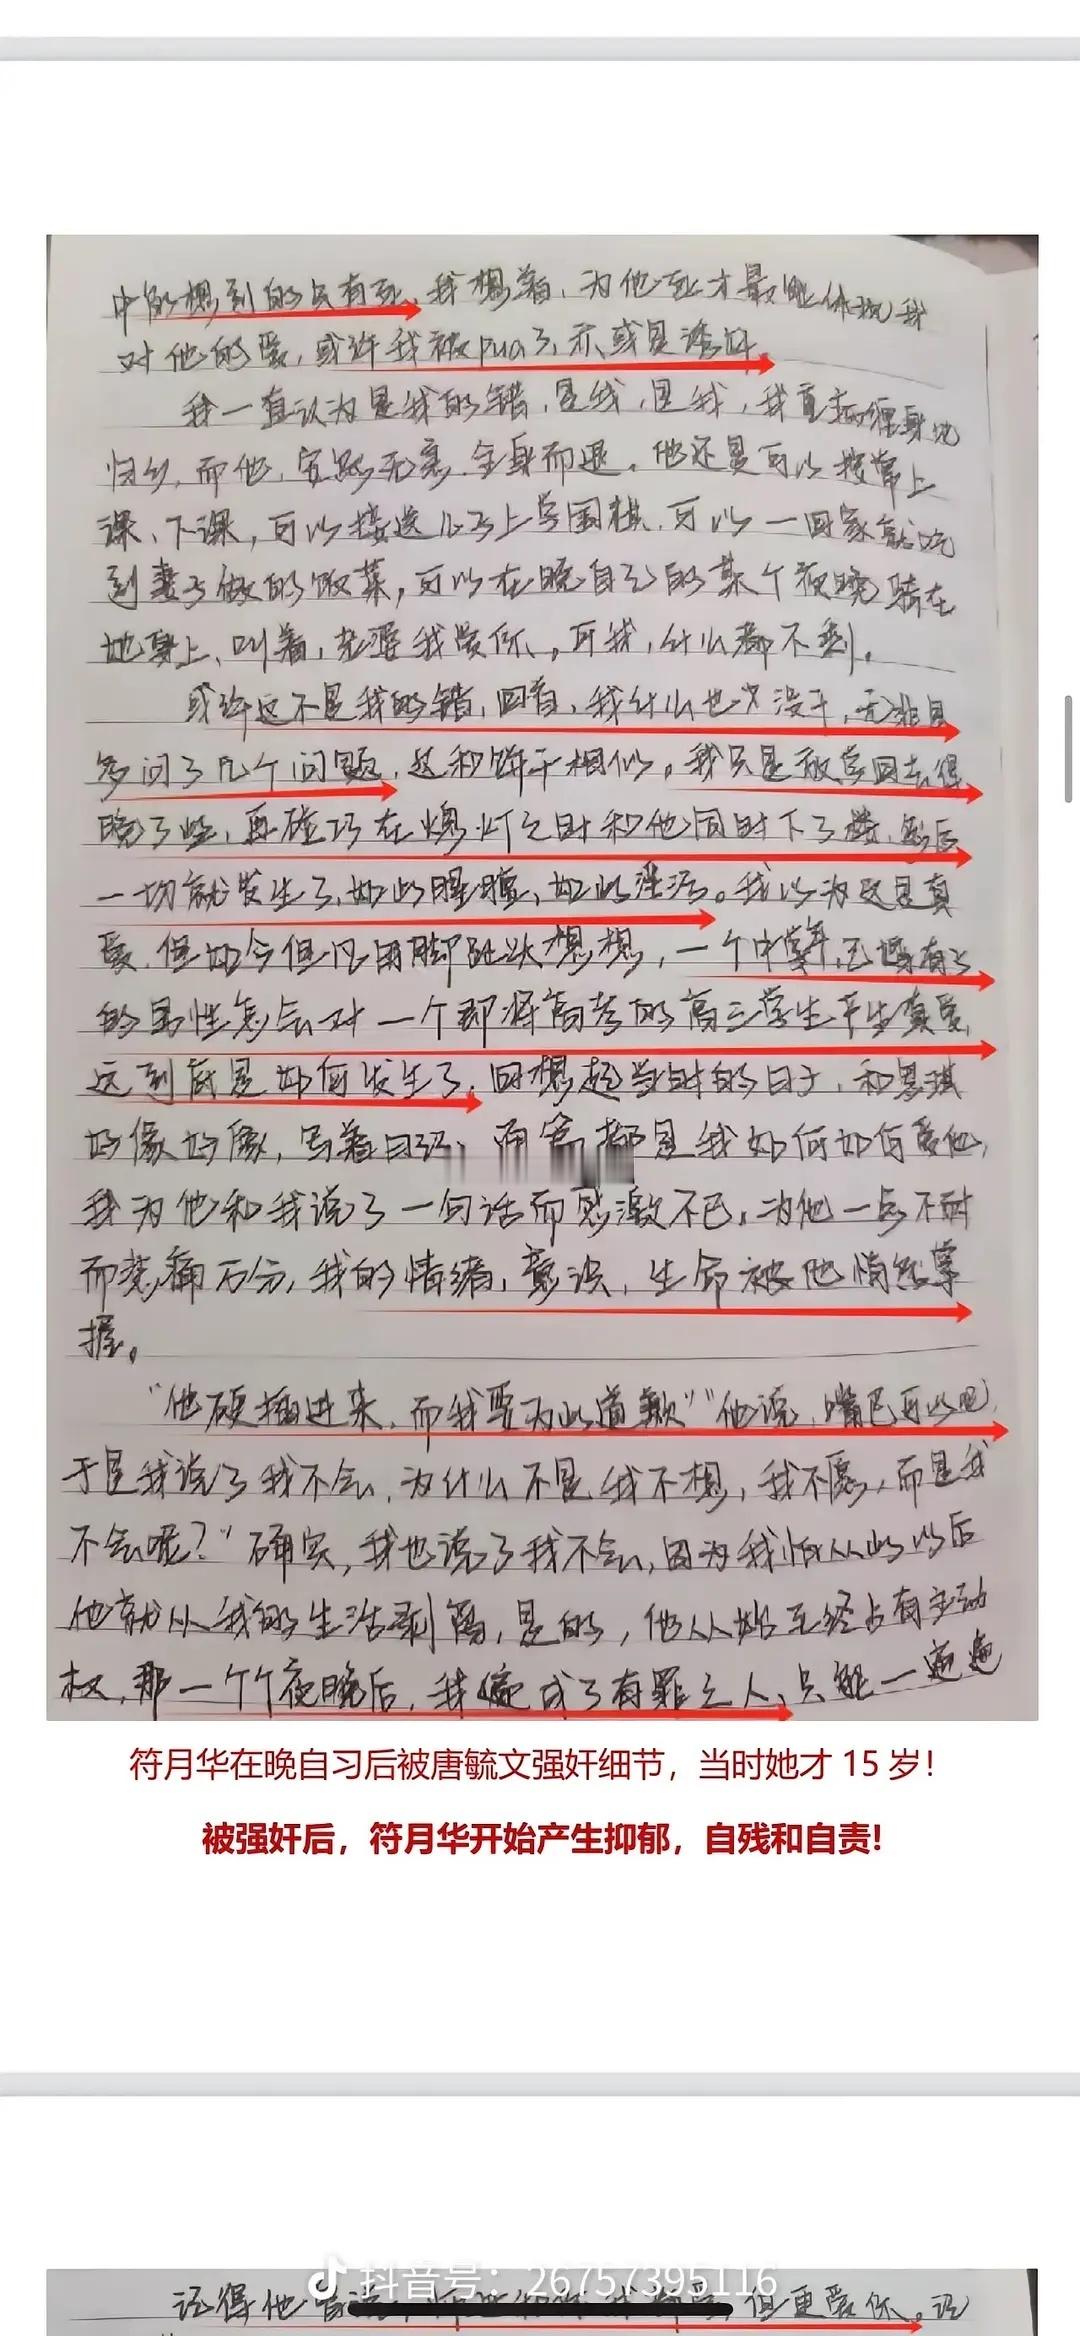 中的想到的只有死,我想着,为他死才最能体现我
对他的爱,或许我被pua了,亦或是诱奸。
我一直认为是我的错,是我,是我,我
归乡,而他,安然无恙,全身而退。他还是可以按常上
课、下课,可以接送儿子上学围棋,可以一回家就吃
到妻子做的饭菜,可以在晚自习的某个夜晚骑在
她身上,叫着,老婆我爱你,可我,什么都不剩。
或许这不是我的错,回首,我什么也没干,无非是
多问了几个问题,这和饼干相似。我只是放学回去得
晚了些,再碰巧在熄灯之时和他同时下了楼,然后
一切就发生了,如此腥膻,如此 。我以为这是真
爱,但如今但凡用脚趾头想想,一个中年已婚有子
的男性怎会对一个即将高考的高三学生产生真爱,
这到底是如何发生了,回想起当时的日子,和思琪
好像好像,写着日记,内容都是我如何如何爱他,
我为他和我说了一句话而感激不已,为他一点不耐
而悲痛万分,我的情绪,意识,生命被他悄然掌
握。
“他硬插进来,而我要为此道歉”“他说,嘴巴可以吧,
于是我说了我不会,为什么不是我不想,我不愿,而是我
不会呢?”确实,我也说了我不会,因为我怕从此以后
他就从我的生活剥离,是的,他从始至终占有主动
权,那一个个夜晚后,我便成了有罪之人,只能一遍遍
符月华在晚自习后被唐毓文强奸细节,当时她才 15 岁!
被强奸后,符月华开始产生抑郁,自残和自责!
抖音号:26757395116
记得他曾说 但更爱你。记